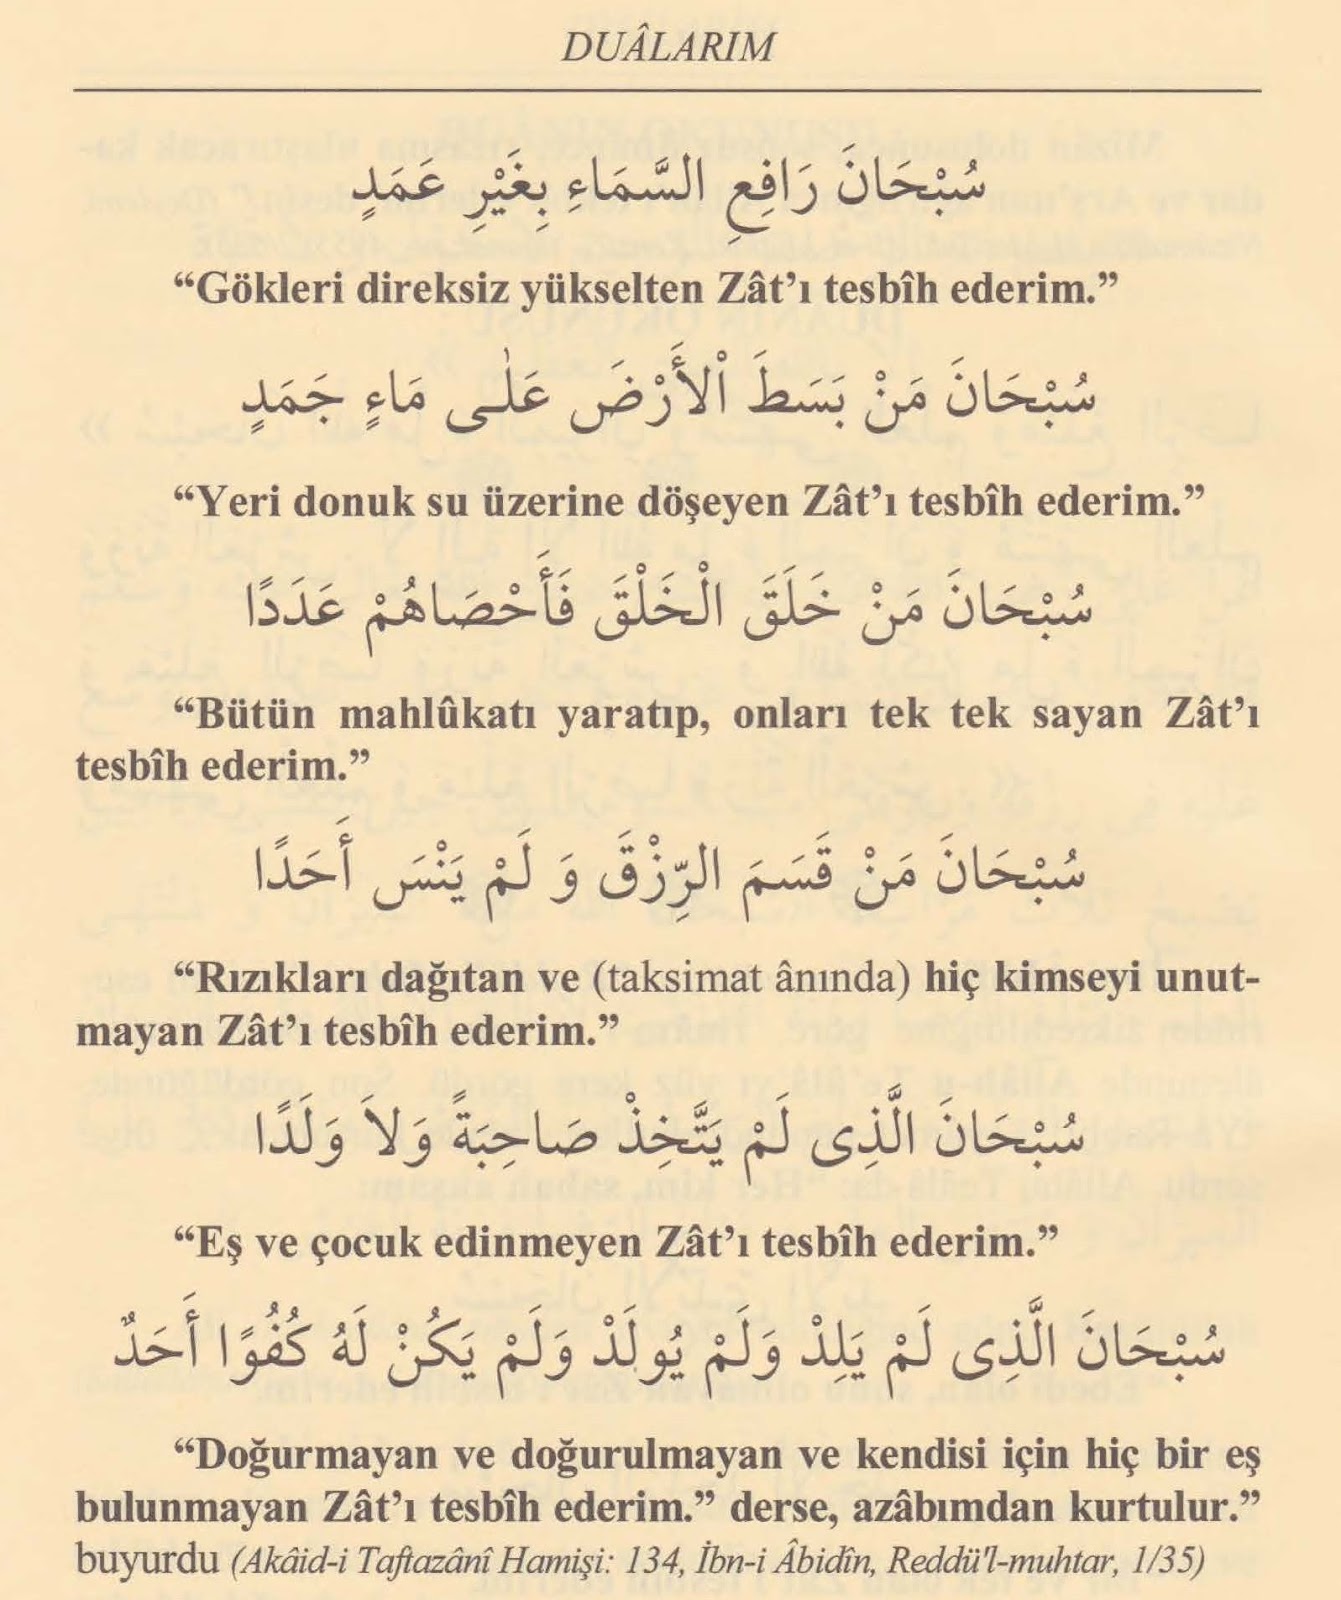 DUÂLARIM
سُبْحَانَ رَافِعِ السَّمَاءِ بِغَيْرِ عَمَدٍ
“Gökleri direksiz yükselten Zât’ı tesbîh ederim.”
سُبْحَانَ مَنْ بَسَطَ اْلأَرْضَ عَلٰى مَاءٍ جَمَدٍ
“Yeri donuk su üzerine döşeyen Zât’ı tesbîh ederim.”
سُبْحَانَ مَنْ خَلَقَ الْخَلْقَ فَأَحْصَاهُمْ عَدَدًا
“Bütün mahlûkatı yaratıp, onları tek tek sayan Zât’ı
tesbîh ederim.”
سُبْحَانَ مَنْ قَسَمَ الرِّزْقَ وَ لَمْ يَنْسَ أَحَدًا
“Rızıkları dağıtan ve (taksimat ânında) hiç kimseyi unut-
mayan Zât’ı tesbîh ederim.”
سُبْحَانَ الَّذِى لَمْ يَتَّخِذْ صَاحِبَةً وَلاَ وَلَدًا
“Eş ve çocuk edinmeyen Zât’ı tesbîh ederim.”
سُبْحَانَ الَّذِى لَمْ يَلِدْ وَلَمْ يُولَدْ وَلَمْ يَكُنْ لَهُ كُفُوًا أَحَدٌ
“Doğurmayan ve doğurulmayan ve kendisi için hiç bir eş
bulunmayan Zât’ı tesbîh ederim.” derse, azâbımdan kurtulur.”
buyurdu (Akâid-i Taftazânî Hamişi: 134, İbn-i Âbidîn, Reddü'l-muhtar, 1/35)